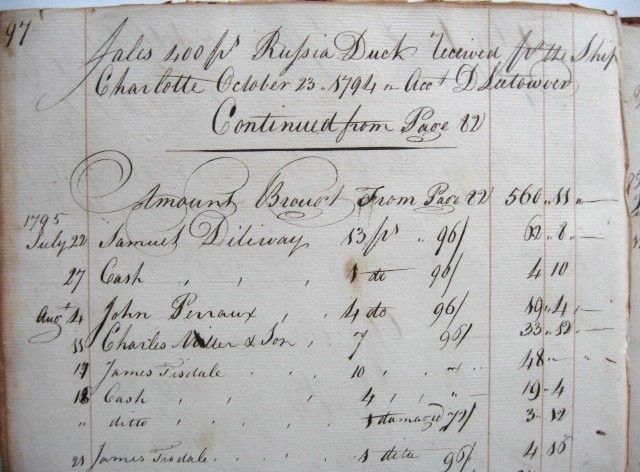 97
Sales 400 ps Russia Duck received pr the Ship
Charlotte October 23 .. 1794 on Acct D
Continued from Page 82
Amount Brougt From Page 82 560 .. 11 .. —
1795
July 22 Samuel Diliway 13 ps .. 96/ 62 .. 8 .. —
27 Cash , , , 1 do 96/ 4 10
Augt 4 John Perraux , , 4 do 96/ 19 .. 4 .. —
11 Charles Miller & Son . . 7 96/ 33 .. 12 .. —
James Tisdale . . . 10 , , .. 48 .. —
18 Cash , , , 4 , , .. 19 .. 4
.. ditto , , , 1 damaged 72/ 3 .. 12
21 James Tisdale . . . 1 ditto 96/ 4 16